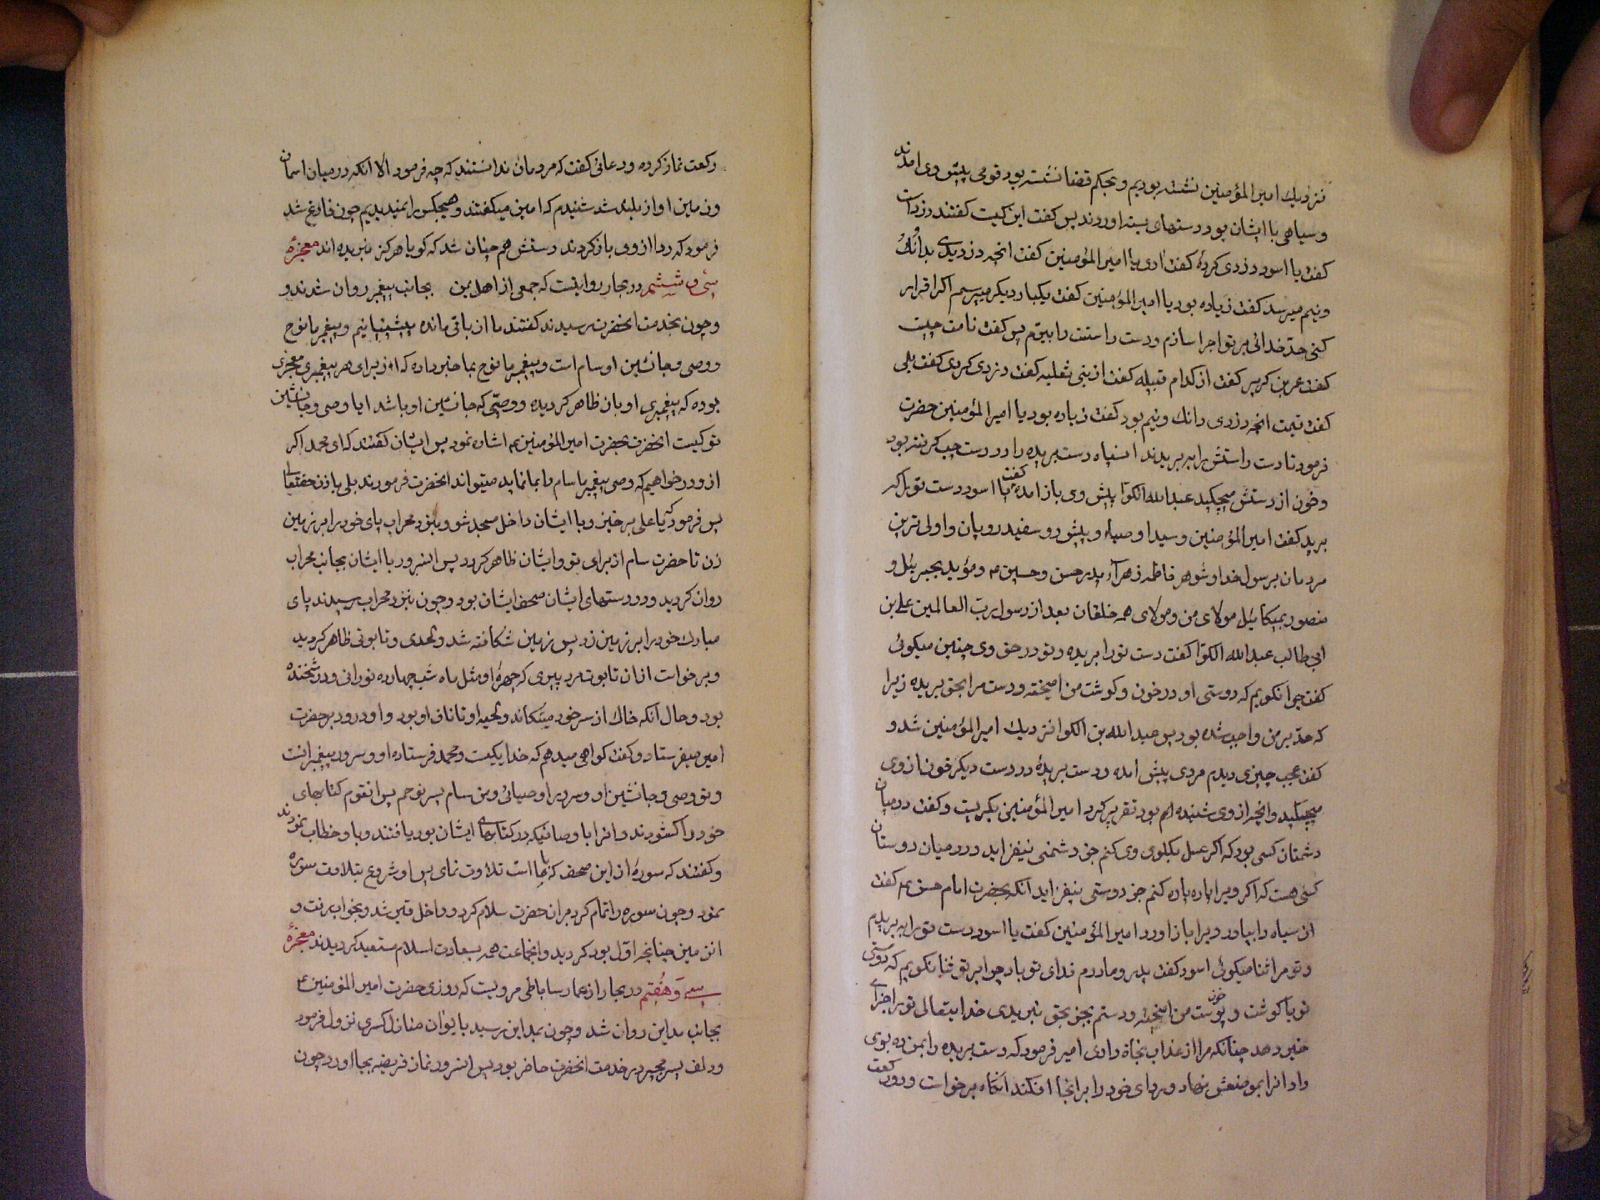 نزدیك امیر المؤمنین نشسته بودیم و بحکم قضا نشسته بود قومی پیش وی امدند
و سیاهی با ایشان بود دستهای بسته اوردند پس گفت این کیست گفتند دزداست
گفت یا اسود دزدی کردهٔ گفت اری یا امیر المؤمنین گفت انچه دزدیدی بدانگی
ونیم میرسد گفت زیاده بود یا امیر المؤمنین گفت یکبار دیگر میپرسم اگر اقرار
کنی حدّ خدائی بر تو اجرا سازم و دست راستت را ببرّم پس گفت نامت چیست
گفت گفت از کدام قبیله گفت از بنی ثعلبه گفت دزدی کردی گفت بلی
گفت قیمت انچه دزدی دانك ونیم بود گفت زیاده بود یا امیر المؤمنین حضرت
فرمود تا دست راستش را ببریدند انسیاه دست بریده را در دست چپ گرفته بود
و خون از دستش میچکید عبد الله الکوّا پیش وی باز امد گفت یا اسود دست تو را که
برید گفت امیر المؤمنین و سید اوصیاء و پیش رو سفید رویان و اولی ترین
مردمان برسول خدا و شوهر فاطمه زهراء پدر حسن و حسین و مؤید بجبرئیل و
منصور بمیکائیل مولای من و مولای همه خلقان بعد از رسول رب العالمین علی بن
ابیطالب عبد الله الکوّا گفت دست تو را بریده و تو در حق وی چنین میگوئی
گفت چرا نگویم که دوستی او در خون و گوشت من امیخته و دست مرا بحق بریده زیرا
که حدّ بر من واجب شده بود پس عبد الله بن الکوا نزدیك امیر المؤمنین شد و
گفت عجب چیزی دیدم مردی پیش امده و دست بریدهٔ در دست دیگر خون از وی
میچکید وانچه از وی شنیده ام بود تقریر کرد امیر المؤمنین بگریست و گفت در میان
دشمنان کسی بود که اگر عسل بگلوی وی کنم جز دشمنی نیفزاید و در میان دوستان
کسی هست که اگر ویرا پاره پاره کنم جز دوستی نیفزاید انگه بحضرت امام حسن گفت
ان سیاه را بیاور ویرا باز اورد امیر المؤمنین گفت یا اسود دست تو را ببریدم
و تو مرا ثنا میگوئی اسود گفت پدر و مادرم فدای تو باد چرا بر تو ثنا نگویم که دوستی
تو با گوشت و خون و پوست من امیخته و دستم بجز بحق نبریدی خدایتعالی تو را جزای
خیر دهد چنانکه مرا از عذاب نجاة دادی امیر فرمود که دست بریده را بمن ده بوی
داد انرا بموضعش نهاد و ردای خود را بر انجا افکند انگاه برخواست و دو رکعت
رکعت نماز کرده و دعائی گفت که مردمان ندانستند که چه فرمود الا انکه در میان اسمان
و زمین اواز بلند شد شنیدم که امین میگفتند و هیچکس را نمیدیدیم چون فارغ شد
فرمود که ردا از وی باز کردند دستش هم چنان شد که گویا هرگز نبریده اند معجزهٔ
سی و ششم در بحار روایتست که جمعی از اهل یمن بجانب پیغمبر روان شدند و
و چون بخدمت انحضرت رسیدند گفتند ما از باقی مانده پیشینیانیم و پیغمبر ما نوح
و وصی و جانشین او سام است و پیغمبر ما نوح بما خبر داده که از برای هر پیغمبری معجزی
بوده که پیغمبری او بان ظاهر گردیده و وصیّی که جانشین او باشد ایا وصی و جانشین
تو کیست انحضرت بحضرت امیر المؤمنین اشاره نمود پس ایشان گفتند که ای محمد اگر
از و در خواهیم که وصی پیغمبر ما سام را بما نماید میتواند انحضرت فرمودند بلی باذن حقتعالی
پس فرمود که یا علی برخیز و با ایشان داخل مسجد شو و بنزد محراب پای خود را بر زمین
زن تا حضرت سام از برای تو و ایشان ظاهر گردد پس انسرور با ایشان بجانب محراب
روان گردید و در دستهای ایشان صحف ایشان بود و چون بنزد محراب رسیدند پای
مبارك خود را بر زمین زد پس زمین شکافته شد و لحدی و تابوتی ظاهر گردید
و برخواست از ان تابوت مرد پیری که چهرهٔ او مثل ماه شب چهارده نورانی و درخشنده
بود و حال انکه خاك از سر خود میتکاند و لحیه او تا ناف او بود و او درود بر حضرت
امیر میفرستاد و گفت گواهی میدهم که خدا یکیست و محمد فرستاده او و سرور پیغمبرانست
و تو وصی و جانشین او و سرور اوصیائی و من سام پسر نوحم پس انقوم کتابهای
خود را گشودند و انرا باوصافیکه در کتابهای ایشان بود یافتند و باو خطاب نمودند
و گفتند که سورهٔ از این صحف که با ما است تلاوت نمای پس او شروع بتلاوت سوره
نمود و چون سوره را تمام کرد بر ان حضرت سلام کرد و داخل قبر شد و بخواب رفت و
ان زمین چنانچه اوّل بود گردید و انجماعت همه بسعادت اسلام مستعید گردیدند معجزهٔ
سی و هفتم در بحار از عمار ساباطی مرویست که روزی حضرت امیر المؤمنین ع
بجانب مداین روان شد و چون بمداین رسید بایوان منازل کسری نزول فرمود
و دلف پسر مجیر در خدمت انحضرت حاضر بود پس انسرور نماز فریضه بجا اورد چون